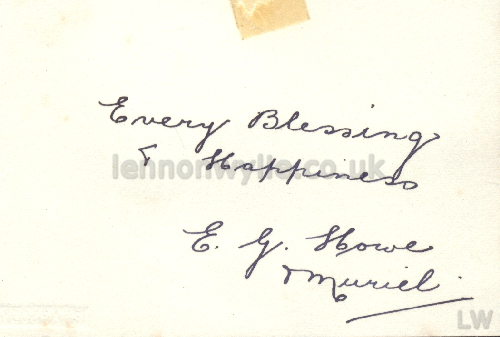 Every Blessing
& Happiness
lennonwylie.co.uk
E. G. Howe
& Muriel.
LW